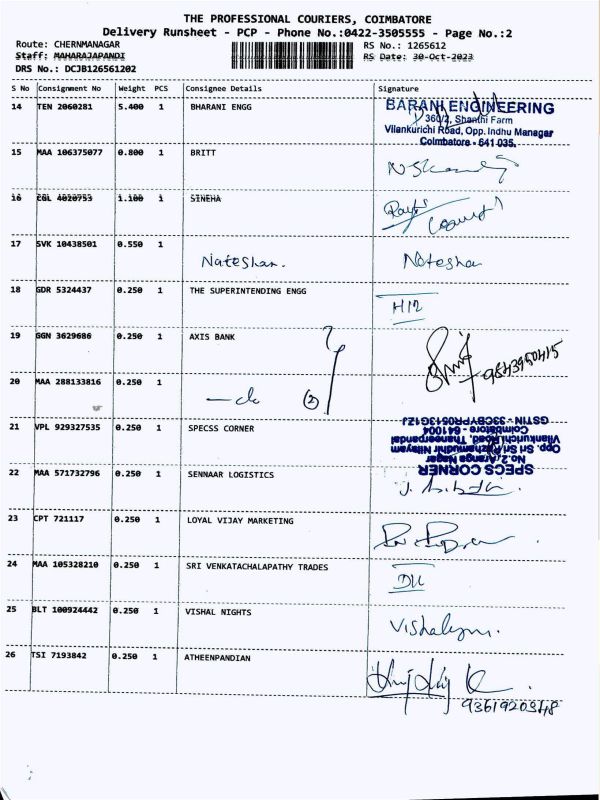 THE PROFESSIONAL COURIERS, COIMBATORE
Delivery Runsheet - PCP - Phone No.:0422-3505555 - Page No.:2
Route: CHERNMANAGAR RS No.: 1265612
Staff: MAHARAJAPANDI RS Date: 30-Oct-2023
DRS No.: DCJB126561202
S No Consignment No Weight PCS Consignee Details Signature
14 TEN 2060281 5.400 1 BHARANI ENGG
BARANI ENGINEERING
360/2, Shanthi Farm
Vilankurichi Road, Opp. Indhu Managar
Coimbatore - 641 035.
15 MAA 106375077 0.800 1 BRITT
16 CGL 4020753 1.100 1 SINEHA
17 SVK 10438501 0.550 1
Nateshan. Nateshan
18 GDR 5324437 0.250 1 THE SUPERINTENDING ENGG
H12
19 GGN 3629686 0.250 1 AXIS BANK
9843950415
20 MAA 288133816 0.250 1
— do (2)
21 VPL 929327535 0.250 1 SPECSS CORNER
SPECS CORNER
No.2, Aranga Nagar
Opp. Sri Sri Pazhamudhir Nilayam
Vilankurichi Road, Thaneerpandal
Coimbatore - 641004
22 MAA 571732796 0.250 1 SENNAAR LOGISTICS
23 CPT 721117 0.250 1 LOYAL VIJAY MARKETING
24 MAA 105328210 0.250 1 SRI VENKATACHALAPATHY TRADES
25 BLT 100924442 0.250 1 VISHAL NIGHTS
26 TSI 7193842 0.250 1 ATHEENPANDIAN
9361920348